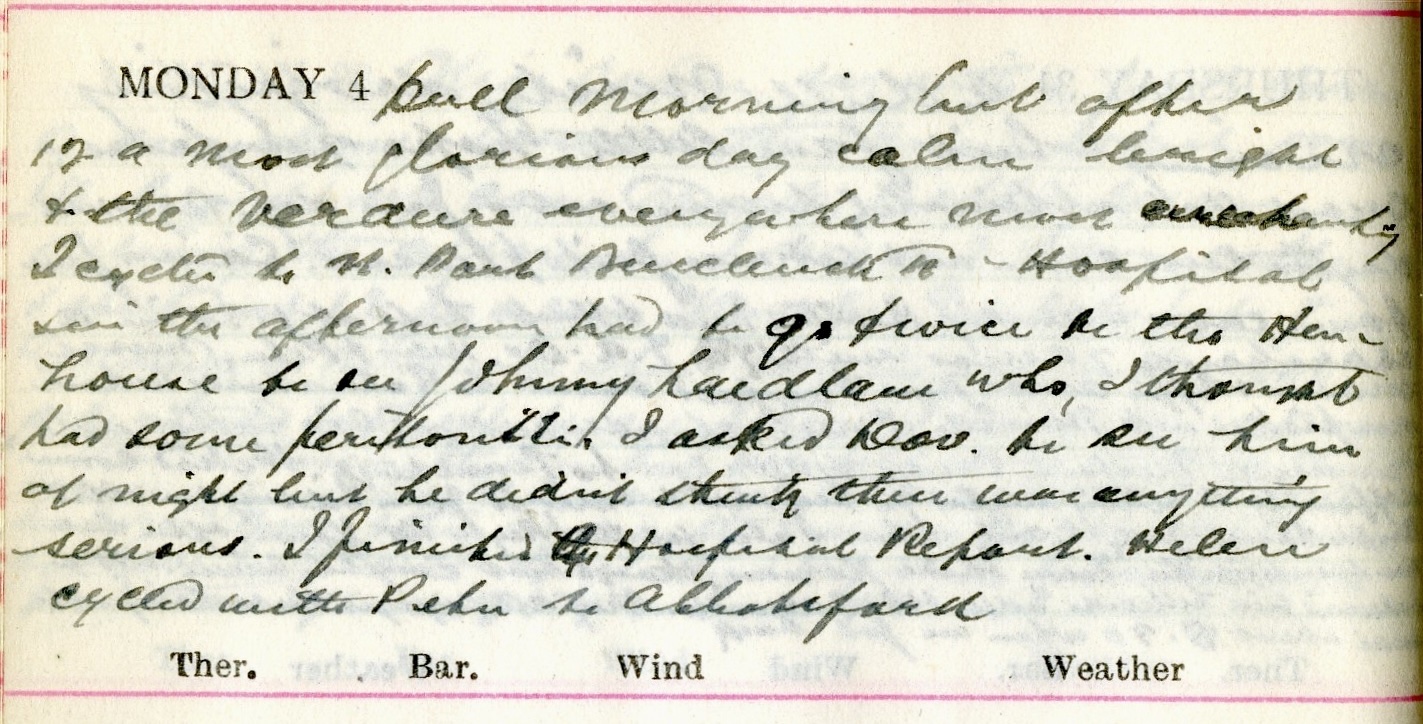 MONDAY 4 Dull morning but after
12 a most glorious day calm bright
& the verdure everywhere most enchanting
I cycled to N. Park Buccleuch To - Hospital
in the afternoon had to go twice to the Hen
house to see Johnny Laidlaw who, I thought
had some peritonitis. I asked Dav. to see him
at night but he didn't think there was anything
serious. I finished the Hospital Report. Helen
cycled with Peter to Abbotsford
Ther. Bar. Wind Weather